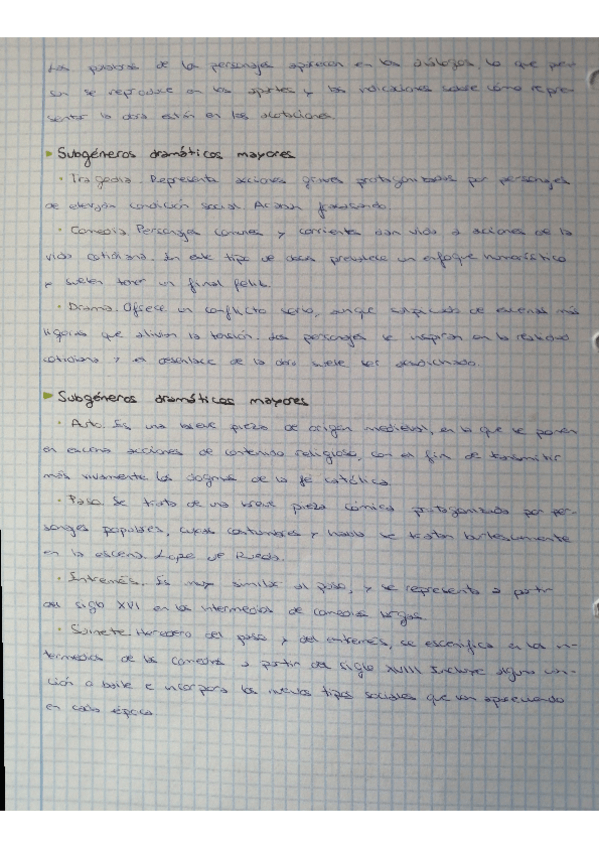 Las palabras de los personajes aparecen en los diálogos, lo que pien-
san se reproduce en los apartes y las indicaciones sobre cómo repre-
sentar la obra están en las acotaciones.
Subgéneros dramáticos mayores
· Tragedia. Representa acciones graves protagonizadas por personajes
de elevada condición social. Acaban fracasando.
· Comedia. Personajes comunes y corrientes dan vida a acciones de la
vida cotidiana. En este tipo de obras prevalece un enfoque humorístico
y suelen tener un final feliz.
· Drama. Ofrece un conflicto serio, aunque salpicado de escenas más
ligeras que alivian la tensión. Los personajes se inspiran en la realidad
cotidiana y el desenlace de la obra suele ser desdichado.
Subgéneros dramáticos mayores
· Auto. Es una breve pieza de origen medieval, en la que se ponen
en escena acciones de contenido religioso, con el fin de transmitir
más vivamente los dogmas de la fe católica.
· Paso. Se trata de una breve pieza cómica protagonizada por per-
sonajes populares, cuyas costumbres y habla se tratan burlescamente
en la escena. Lope de Rueda.
· Entremés. Es muy similar al paso, y se representa a partir
del siglo XVI en los intermedios de comedias largas.
· Sainete. Heredero del paso y del entremés, se escenifica en los in-
termedios de las comedias a partir del siglo XVIII. Incluye alguna can-
ción o baile e incorpora los nuevos tipos sociales que van apareciendo
en cada época.